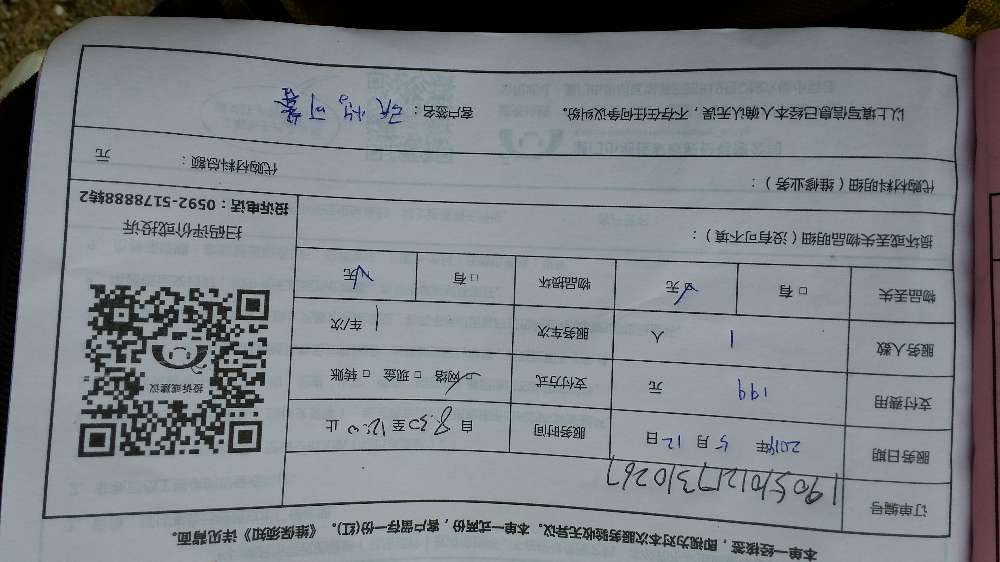 本单一经核签，即视为对本次服务验收无异议。本单一式两份，客户留存一份(红)。《维保须知》详见背面。
订单编号 190510121731026 7
服务日期 2019年 5月 12日 服务时间 自 8:30 至 12:0 止
支付费用 199 元 支付方式 ☑网络 □现金 □转账
服务人数 1 人 服务车次 1 车/次
物品丢失 □有 ☑无 物品损坏 □有 ☑无
投诉或建议
扫码评价或投诉
投诉电话：0592-5178888转2
损坏或丢失物品明细（没有可不填）：
代购材料明细（维修业务）：
代购材料总额： 元
以上填写信息已经本人确认无误，不存在任何争议纠纷。 客户签名：